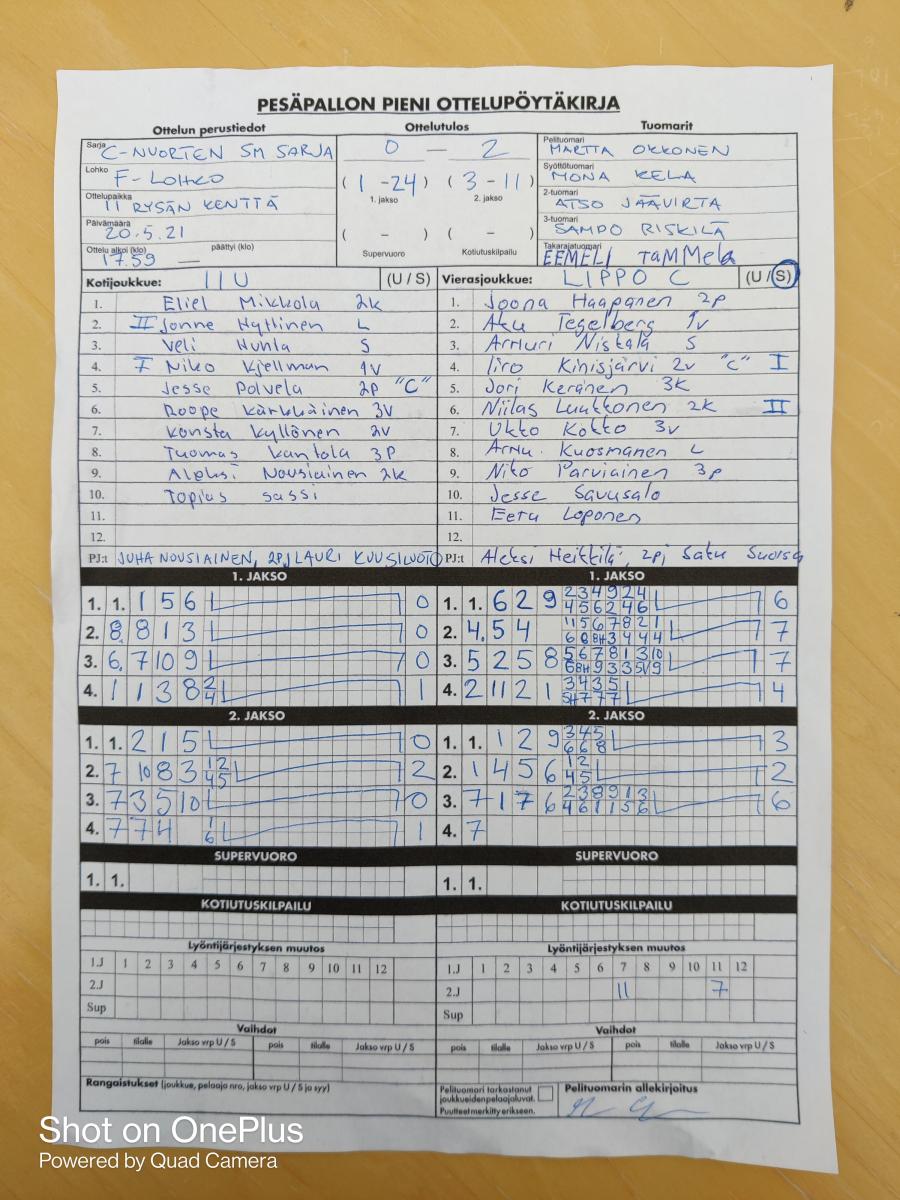 PESÄPALLON PIENI OTTELUPÖYTÄKIRJA
Ottelun perustiedot Ottelutulos Tuomarit
Sarja C-NUORTEN SM SARJA 0 — 2 Pelituomari MARTTA OKKONEN
Lohko F-LOHKO (1-24) (3-11) Syöttötuomari MONA KELA
1. jakso 2. jakso
Ottelupaikka II RYSÄN KENTTÄ 2-tuomari ATSO JÄÄVIRTA
Päivämäärä 20.5.21 ( - ) ( - ) 3-tuomari SAMPO RISKILÄ
Ottelu alkoi (klo) 17.59 päättyi (klo) — Supervuoro Kotiutuskilpailu Takarajatuomari EEMELI TAMMELA
Kotijoukkue: IIU (U / S) Vierasjoukkue: LIPPO C (U / S)
1. Eliel Mikkola 2k 1. Joona Haapanen 2p
2. II Jonne Hyttinen L 2. Aku Tegelberg 1v
3. Veli Huhta S 3. Artturi Niskala S
4. I Niko Kjellman 1V 4. Iiro Kinisjärvi 2v "C" I
5. Jesse Polvela 2P "C" 5. Jori Keränen 3K
6. Roope Kärkkäinen 3V 6. Niilas Luukkonen 2K II
7. Konsta Kyllönen 2V 7. Ukko Kokko 3v
8. Tuomas Kantola 3P 8. Arttu Kuosmanen L
9. Aleksi Nousiainen 2k 9. Niko Parviainen 3p
10. Topias Sassi 10. Jesse Savusalo
11. 11. Eetu Loponen
12. 12.
PJ:t JUHA NOUSIAINEN, 2PJ LAURI KUUSILUOTO PJ:t Aleksi Heikkilä, 2pj Satu Suorsa
1. JAKSO 1. JAKSO
1. 1. 1 5 6 0 1. 1. 6 2 9 6
2. 8. 8 1 3 0 2. 4. 5 4 7
3. 6. 7 10 9 0 3. 5 2 5 8 7
4. 1 1 3 8 2 4 1 4. 2 11 2 1 4
2. JAKSO 2. JAKSO
1. 1. 2 1 5 0 1. 1. 1 2 9 3 4 5 6 6 8 3
2. 7 10 8 3 1 2 4 5 2 2. 1 4 5 6 1 2 4 5 2
3. 7 3 5 10 0 3. 7 1 7 6 2 3 8 9 1 3 4 6 1 1 5 6 6
4. 7 7 4 1 6 1 4. 7
SUPERVUORO SUPERVUORO
1. 1. 1. 1.
KOTIUTUSKILPAILU KOTIUTUSKILPAILU
Lyöntijärjestyksen muutos Lyöntijärjestyksen muutos
1.J 1 2 3 4 5 6 7 8 9 10 11 12 1.J 1 2 3 4 5 6 7 8 9 10 11 12
2.J 2.J 11 7
Sup Sup
Vaihdot Vaihdot
pois tilalle Jakso vrp U / S pois tilalle Jakso vrp U / S pois tilalle Jakso vrp U / S pois tilalle Jakso vrp U / S
Rangaistukset (joukkue, pelaaja nro, jakso vrp U / S ja syy) Pelituomari tarkastanut Pelituomarin allekirjoitus
joukkueidenpelaajaluvat.
Puutteet merkitty erikseen.
Shot on OnePlus
Powered by Quad Camera